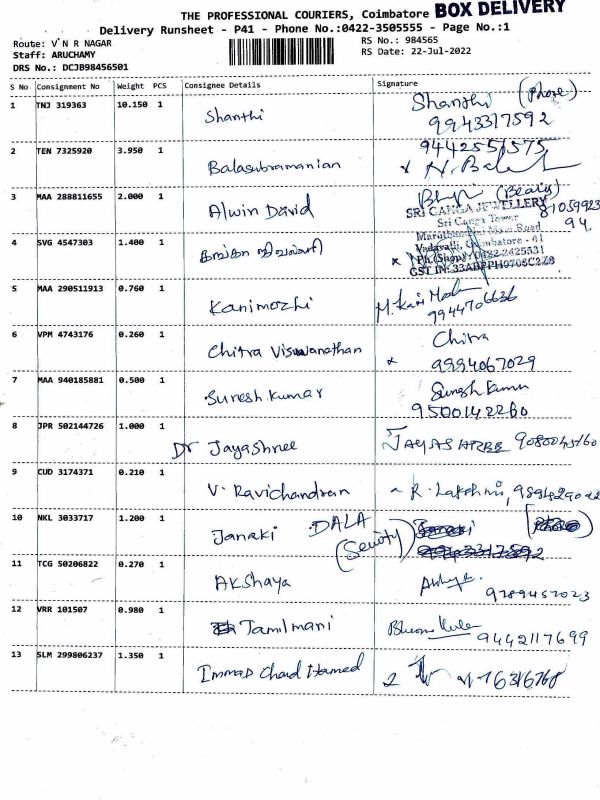 THE PROFESSIONAL COURIERS, Coimbatore BOX DELIVERY
Delivery Runsheet - P41 - Phone No.:0422-3505555 - Page No.:1
Route: V N R NAGAR RS No.: 984565
Staff: ARUCHAMY RS Date: 22-Jul-2022
DRS No.: DCJB98456501
S No Consignment No Weight PCS Consignee Details Signature
1 TNJ 319363 10.150 1 Shanthi Shanthi (Phone)
9943317592
9442551575
2 TEN 7325920 3.950 1 Balasubramanian
3 MAA 288811655 2.000 1 Alwin David
SRI GANGA JEWELLERY 81059923
Sri Ganga Tower 94
Maruthamalai Main Road
Vadavalli, Coimbatore - 41
4 SVG 4547303 1.400 1
Ph (Shop): 0422-2425531
5 MAA 290511913 0.760 1 Kanimozhi
9944706636
6 VPM 4743176 0.260 1 Chitra Viswanathan Chitra
9994067029
7 MAA 940185881 0.500 1 Suresh Kumar Suresh Kumar
9500142260
8 JPR 502144726 1.000 1 Dr Jayashnee
9 CUD 3174371 0.210 1 V. Ravichandran R. Lakshmi, 9894829022
10 NKL 3033717 1.200 1 Janaki DALA
11 TCG 50206822 0.270 1 Akshaya
9789457023
12 VRR 101507 0.980 1 Tamilmani
9442117699
13 SLM 299806237 1.350 1 Immad Chad Hamed